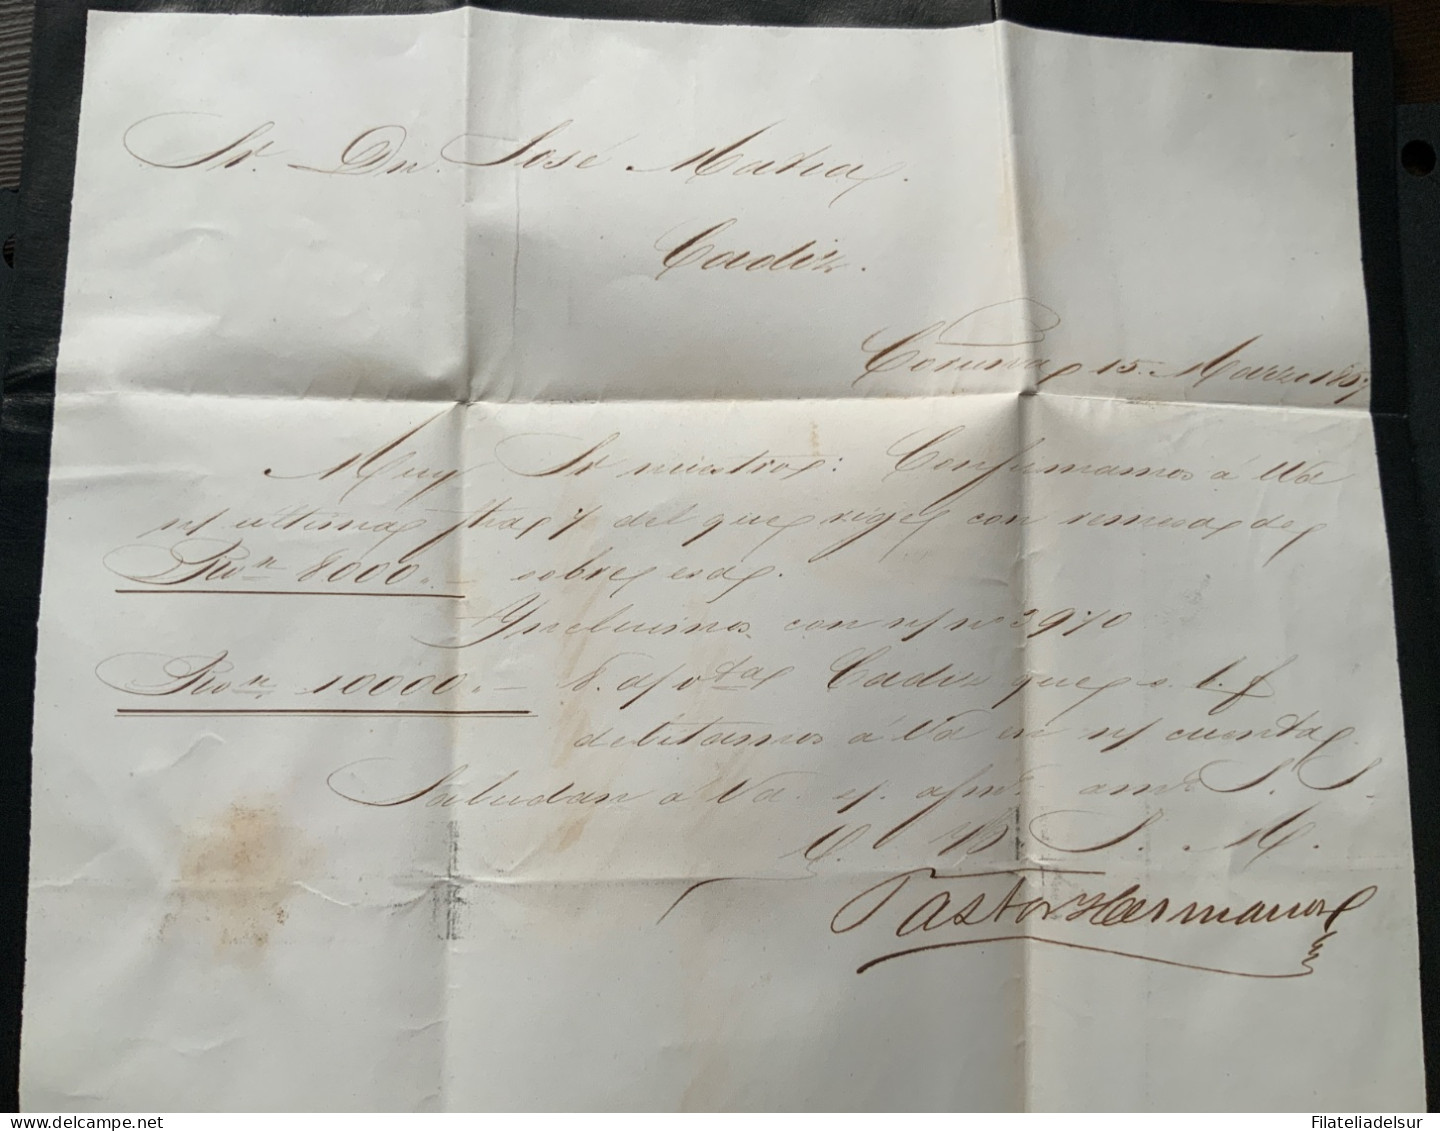 Sr. Dn. José Matia
Cadiz.
Coruña 15. Marzo 1857
Muy Sr nuestro: Confirmamos á Vd
n/ ultima del que rige con remesa de
Rvn. 8000.. sobre esa.
Yncluimos con n/ nº 3970
Rvn. 10000.. Cadiz que s. l. f
debitamos á Vd en n/ cuenta
Saludan a Vd. s/. afmº. amº S. S.
Q. B. S. M.
Pastor Hermanos
Filateliadelsur